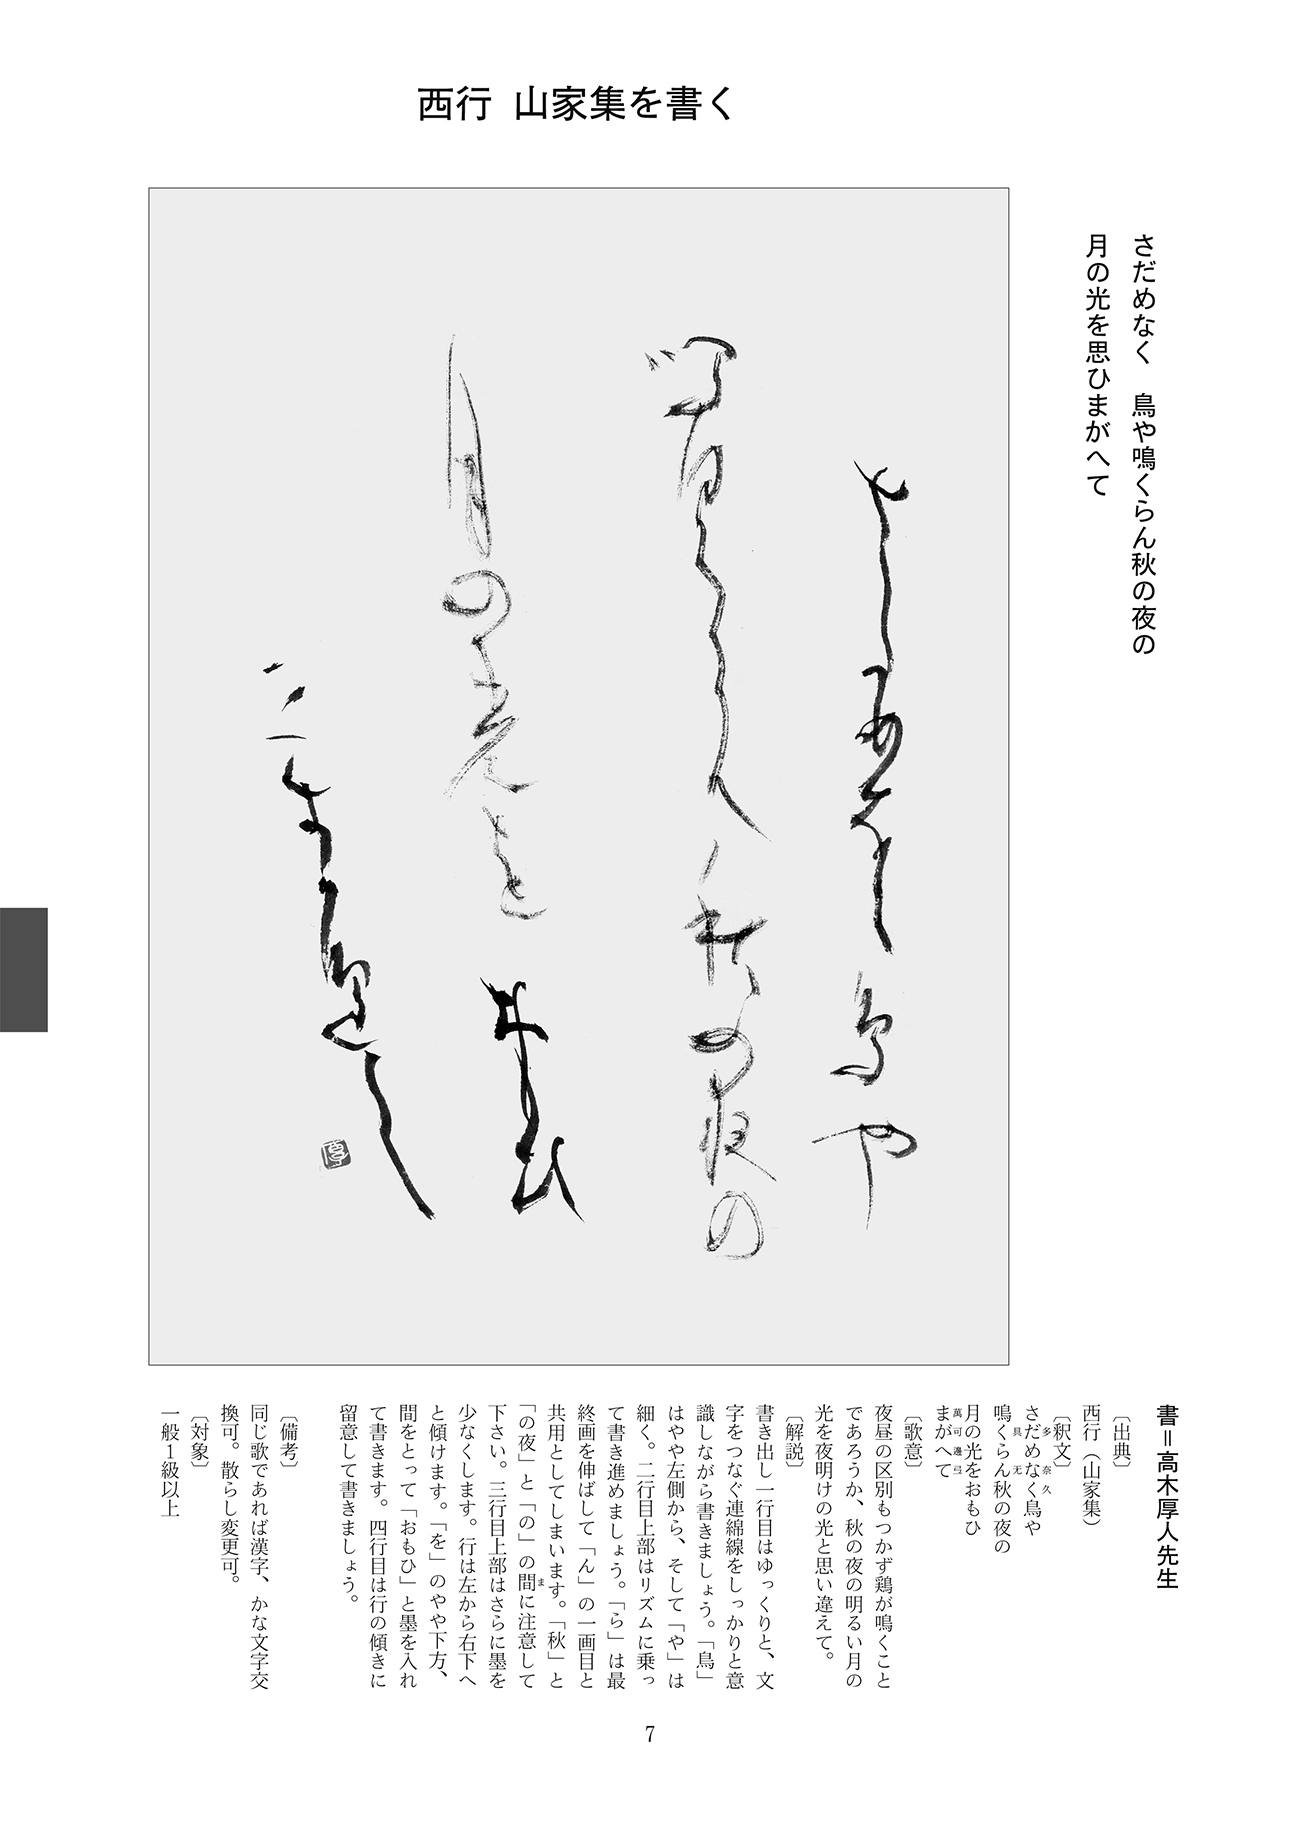 西行 山家集を書く
さだめなく 鳥や鳴くらん秋の夜の
月の光を思ひまがへて
さ多めな久
鳥や
鳴具らん
秋の夜の
月の光を
おもひ
萬可邊弖
書＝高木厚人先生
〔出典〕
西行（山家集）
〔釈文〕
さだめなく鳥や
多 奈久
鳴くらん秋の夜の
具 无
月の光をおもひ
まがへて
萬可邊弖
〔歌意〕
夜昼の区別もつかず鶏が鳴くこと
であろうか、秋の夜の明るい月の
光を夜明けの光と思い違えて。
〔解説〕
書き出し一行目はゆっくりと、文
字をつなぐ連綿線をしっかりと意
識しながら書きましょう。「鳥」
はやや左側から、そして「や」は
細く。二行目上部はリズムに乗っ
て書き進めましょう。「ら」は最
終画を伸ばして「ん」の一画目と
共用としてしまいます。「秋」と
「の夜」と「の」の間に注意して
ま
下さい。三行目上部はさらに墨を
少なくします。行は左から右下へ
と傾けます。「を」のやや下方、
間をとって「おもひ」と墨を入れ
て書きます。四行目は行の傾きに
留意して書きましょう。
〔備考〕
同じ歌であれば漢字、かな文字交
換可。散らし変更可。
〔対象〕
一般１級以上
7